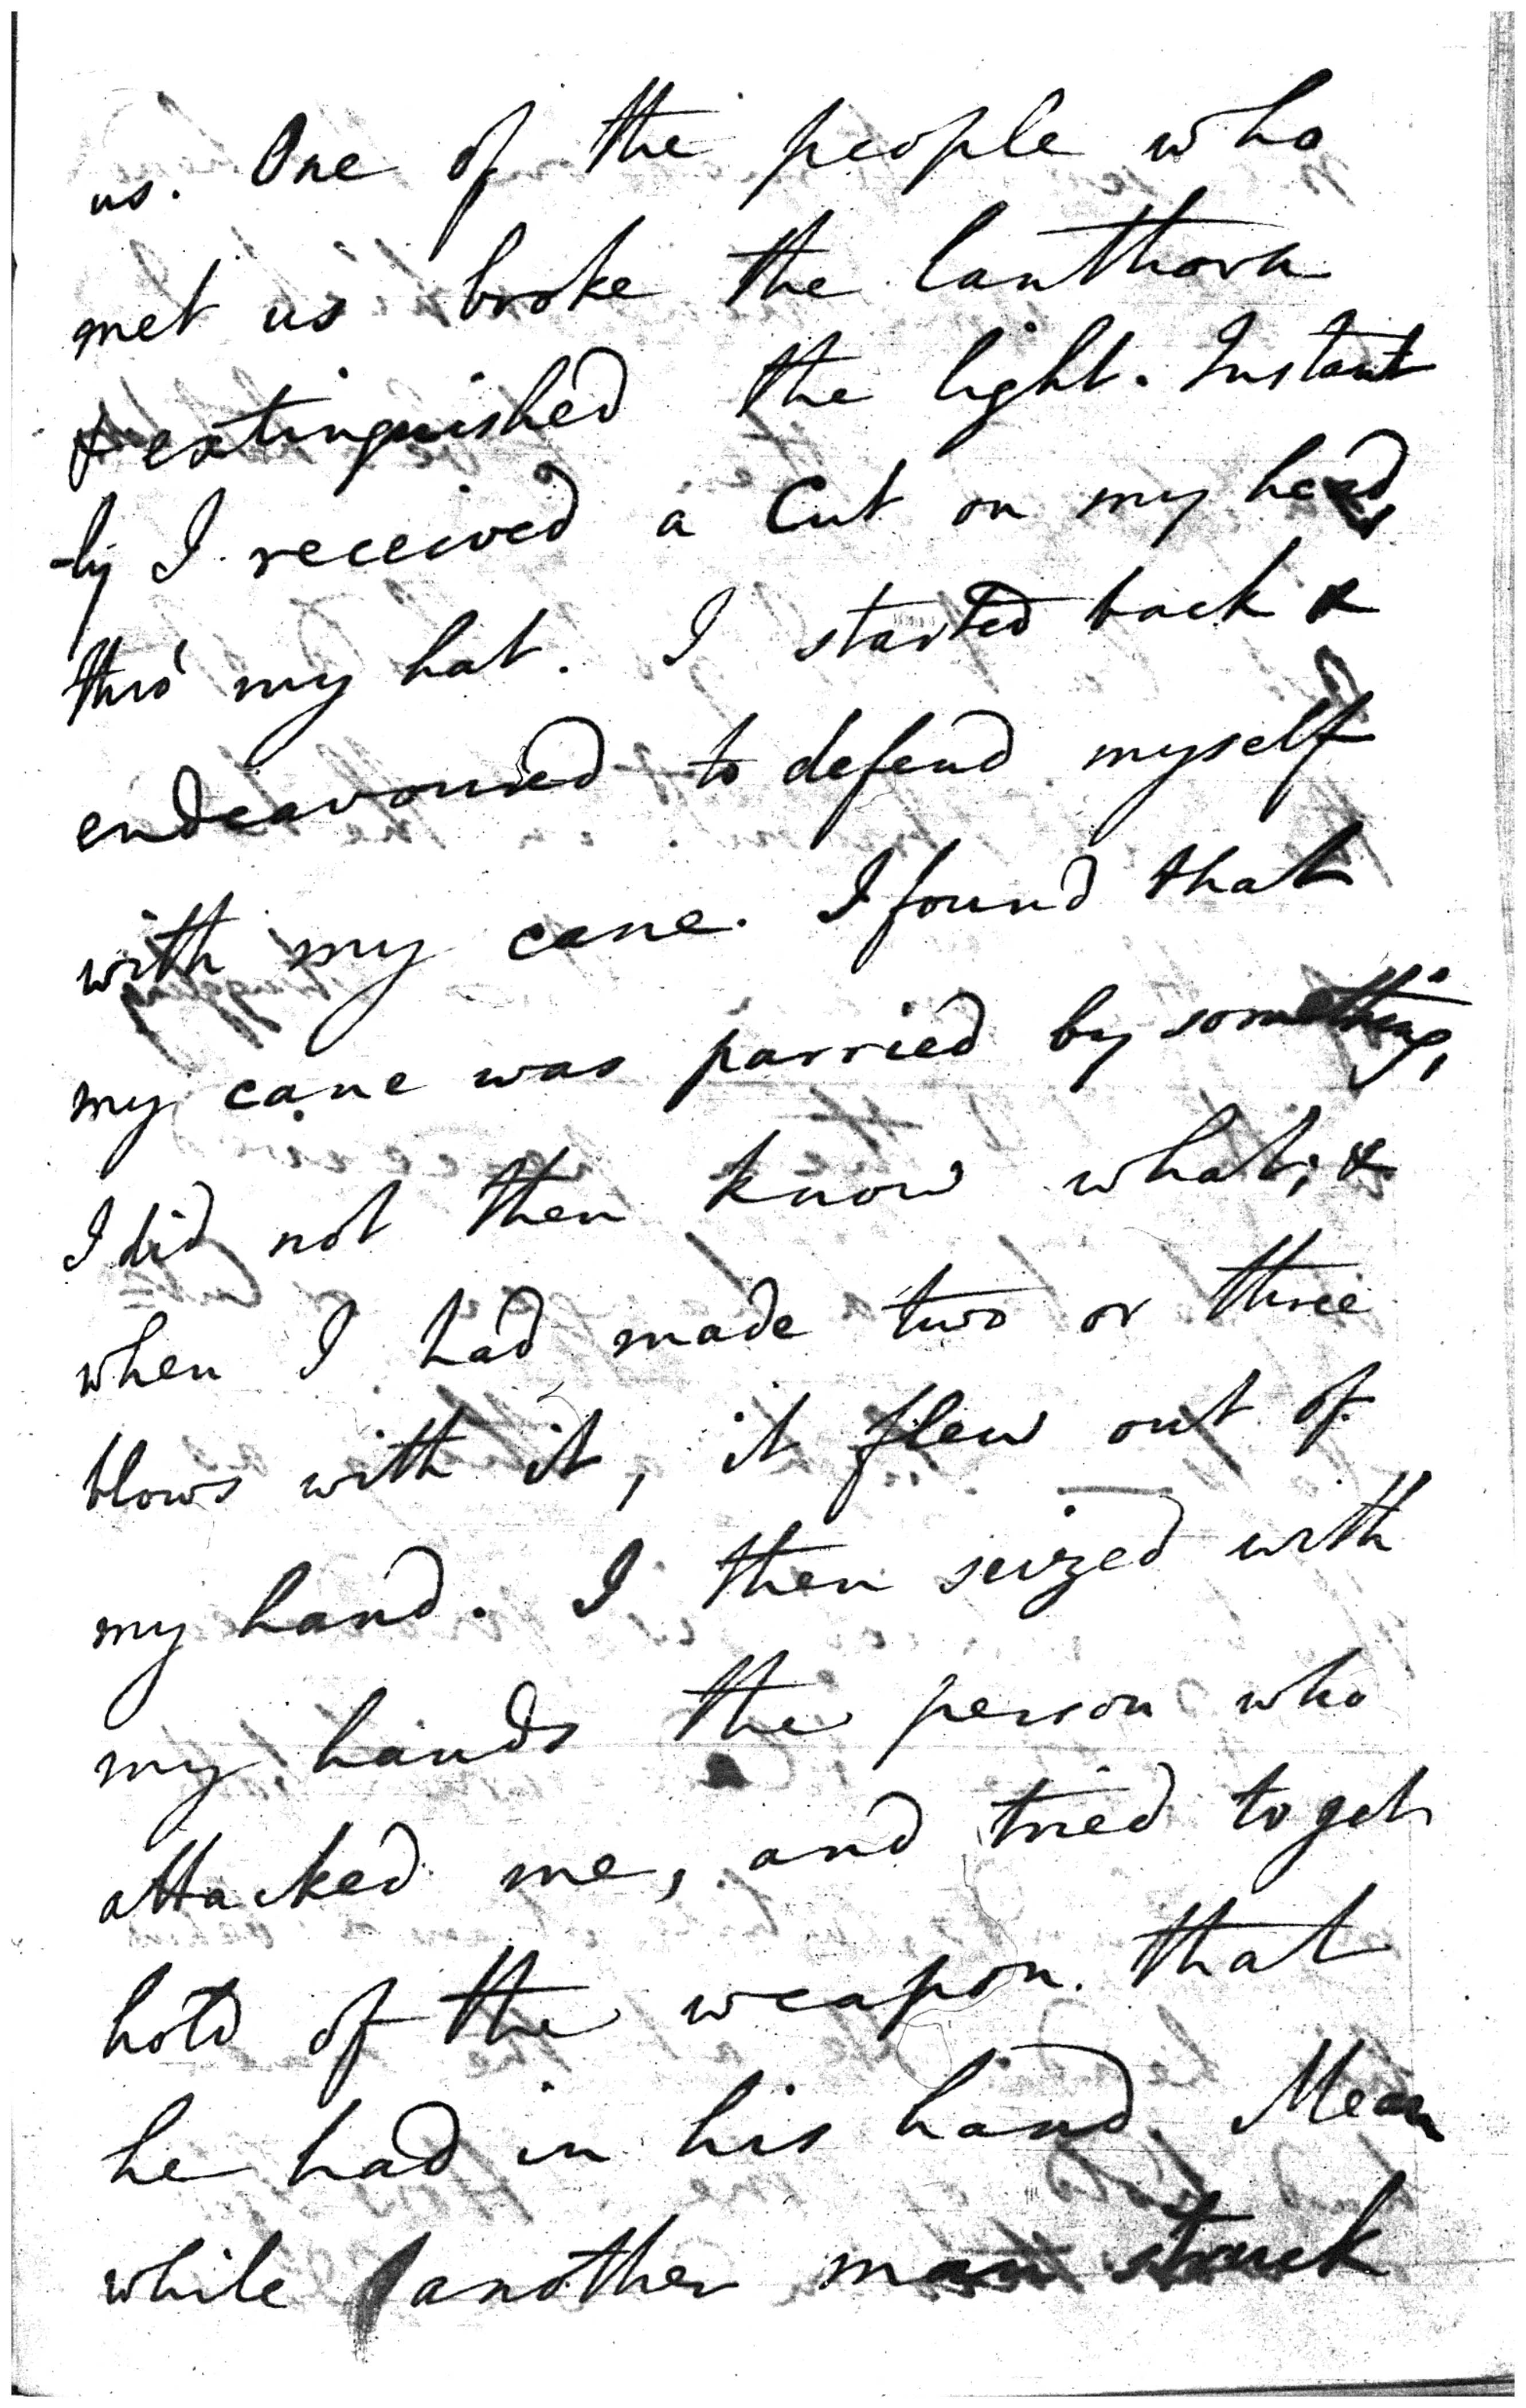 us. One of the people who
met us broke the lanthorn
& extinguished the light. Instant
-ly I received a Cut on my head
thro' my hat. I started back &
endeavoured to defend myself
with my cane. I found that
my cane was parried by something,
I did not then know what; &
when I had made two or three
blows with it, it flew out of
my hand. I then seized with
my hands the person who
attacked me, and tried to get
hold of the weapon that
he had in his hand. Mean
while another man struck